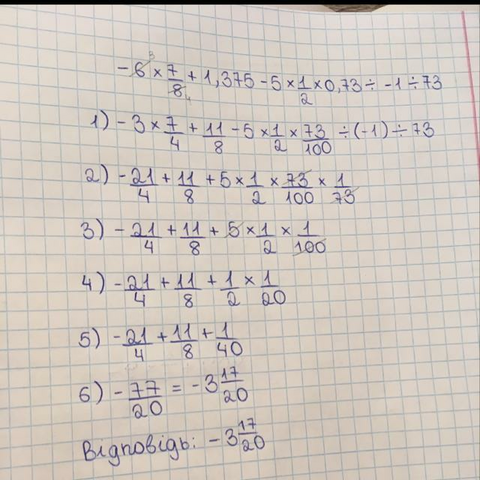 -6 × 7/8 + 1,375 - 5 × 1/2 × 0,73 ÷ -1 ÷ 73
1) -3 × 7/4 + 11/8 - 5 × 1/2 × 73/100 ÷ (-1) ÷ 73
2) -21/4 + 11/8 + 5 × 1/2 × 73/100 × 1/73
3) -21/4 + 11/8 + 5 × 1/2 × 1/100
4) -21/4 + 11/8 + 1/2 × 1/20
5) -21/4 + 11/8 + 1/40
6) -77/20 = -3 17/20
Відповідь: -3 17/20